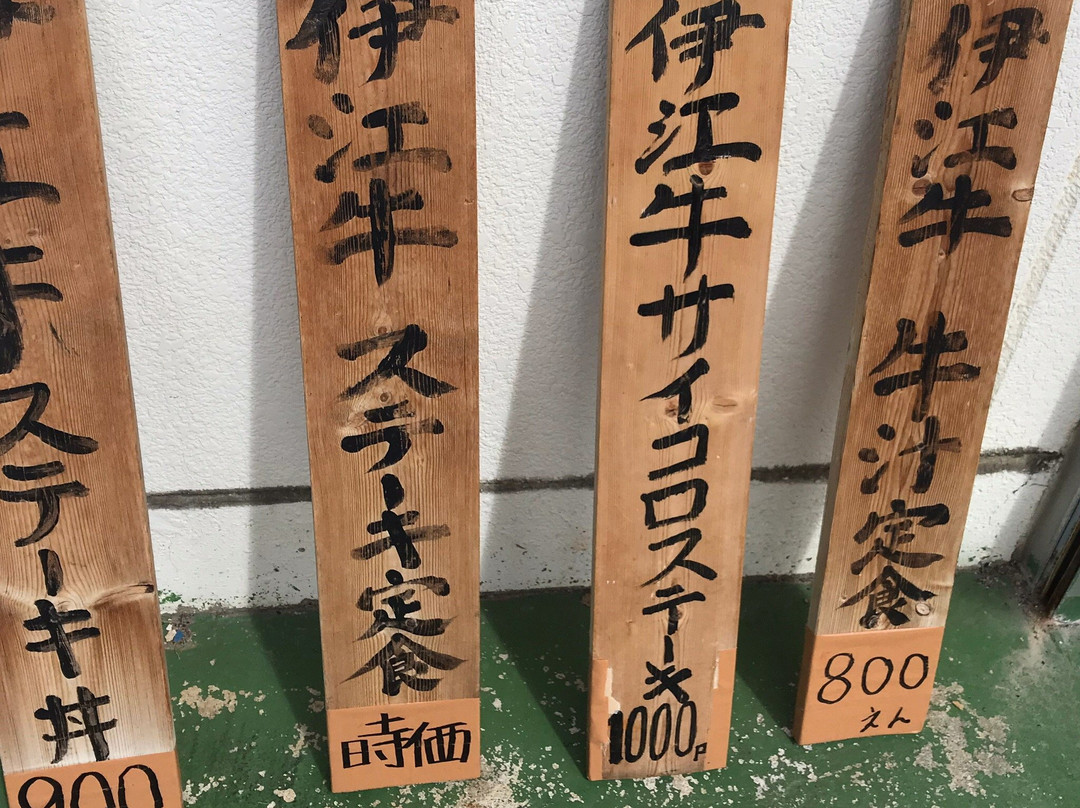 伊江牛 牛汁定食
800
えん
伊江牛サイコロステーキ
1000
伊江牛 ステーキ定食
時価
江牛ステーキ丼
900